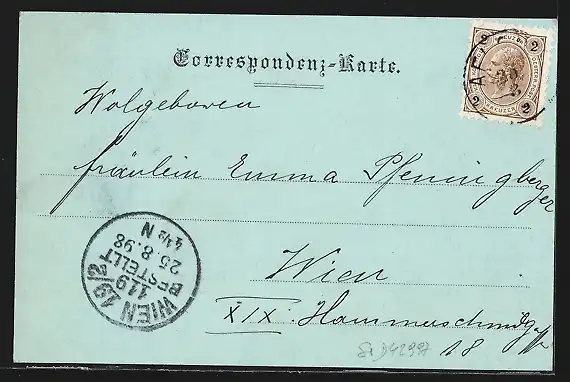 Correspondenz-Karte.
2 KREUZER 2
2 KREUZER 2
Wolgeboren
Fräulein Emma Pfeningberger
Wien
XIX. Hammerschmidg
18
WIEN 19/2
119
BESTELLT
25.8.98
4½ N